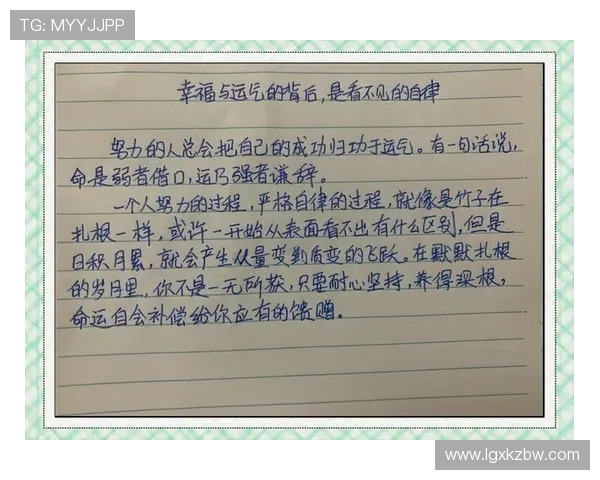 TG: MYYJJPP
幸福与运气的背后,是看不见的自律
努力的人总会把自己的成功归功于运气。有一句话说,
命是弱者借口,运乃强者谦辞。
一个人努力的过程,严格自律的过程,就像是竹子在
扎根一样,或许一开始从表面看不出有什么区别,但是
日积月累,就会产生从量变到质变的飞跃。在默默扎根
的岁月里,你不是一无所获,只要耐心坚持,养得深根,
命运自会补偿给你应有的馈赠。
www.lgxkzbw.com